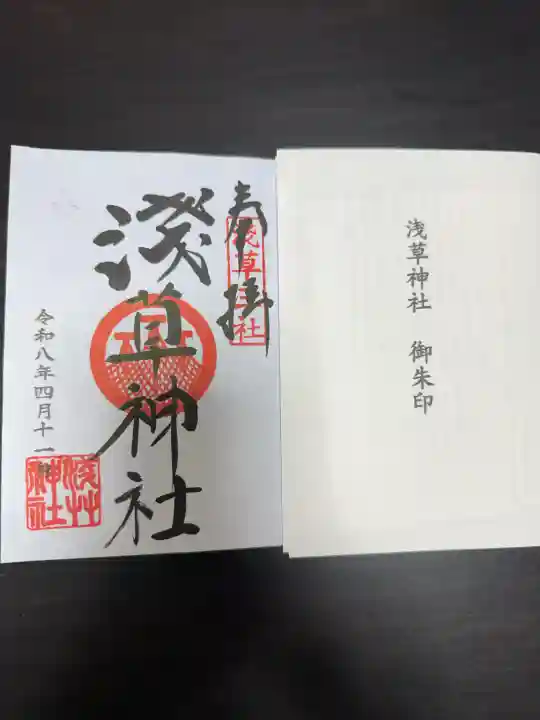 奉拝
浅草神社
淺草神社
令和八年四月十一日
浅草神社
浅草神社 御朱印